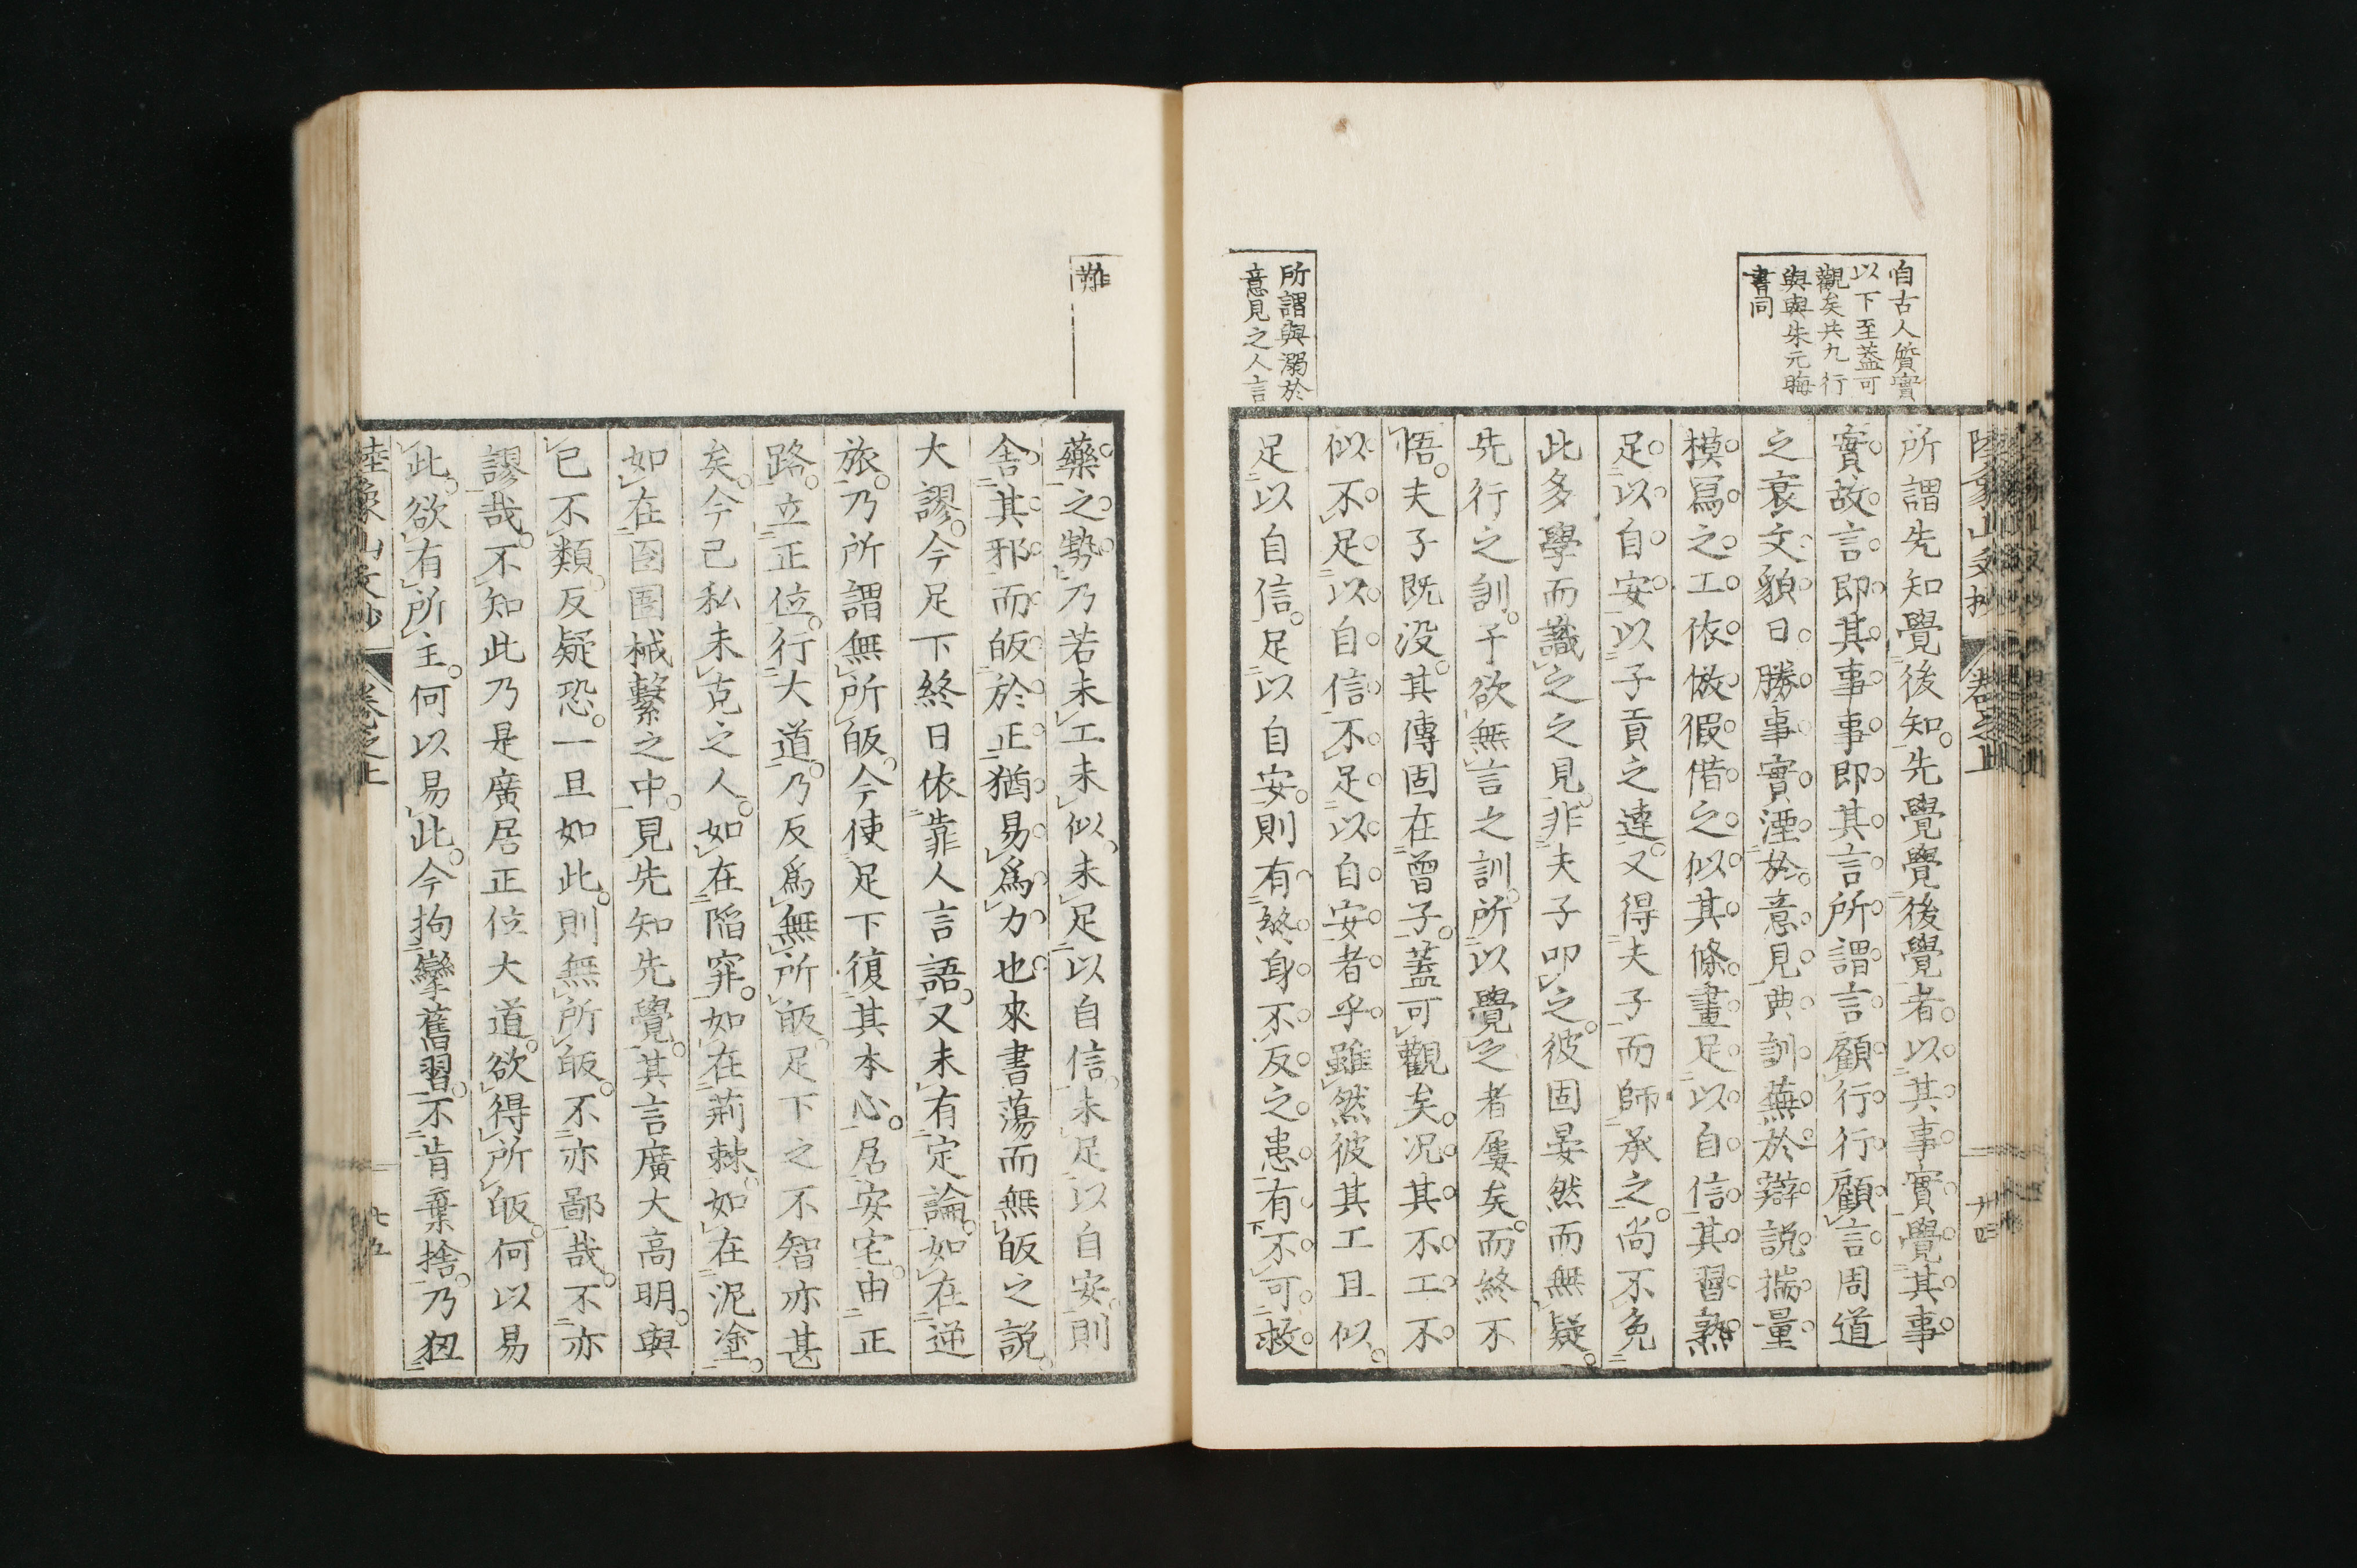 自古人質實
以下至蓋可
觀矣共九行
與與朱元晦
書同
所謂與溺於
意見之人言
所謂先知覺後知先覺覺後覺者以其事實覺其事
實故言即其事事即其言所謂言顧行行顧言周道
之衰文貌日勝事實湮於意見典訓蕪於辯説揣量
模冩之工依倣假借之似其條畫足以自信其習熟
足以自安以子貢之達又得夫子而師承之尚不免
此多學而識之之見非夫子叩之彼固晏然而無疑
先行之訓予欲無言之訓所以覺之者屢矣而終不
悟夫子既没其傳固在曾子蓋可觀矣况其不工不
似不足以自信不足以自安者乎雖然彼其工且似
足以自信足以自安則有終身不反之患有不可救
難
藥之勢乃若未工未似未足以自信未足以自安則
舍其邪而皈於正猶易爲力也來書蕩而無皈之説
大謬今足下終日依靠人言語又未有定論如在逆
旅乃所謂無所皈今使足下復其本心居安宅由正
路立正位行大道乃反爲無所皈足下之不智亦甚
矣今己私未克之人如在陷穽如在荊棘如在泥塗
如在囹圄械繫之中見先知先覺其言廣大高明與
已不類反疑恐一旦如此則無所皈不亦鄙哉不亦
謬哉不知此乃是廣居正位大道欲得所皈何以易
此欲有所主何以易此今拘攣舊習不肯棄捨乃狃
陸象山文抄 卷之上